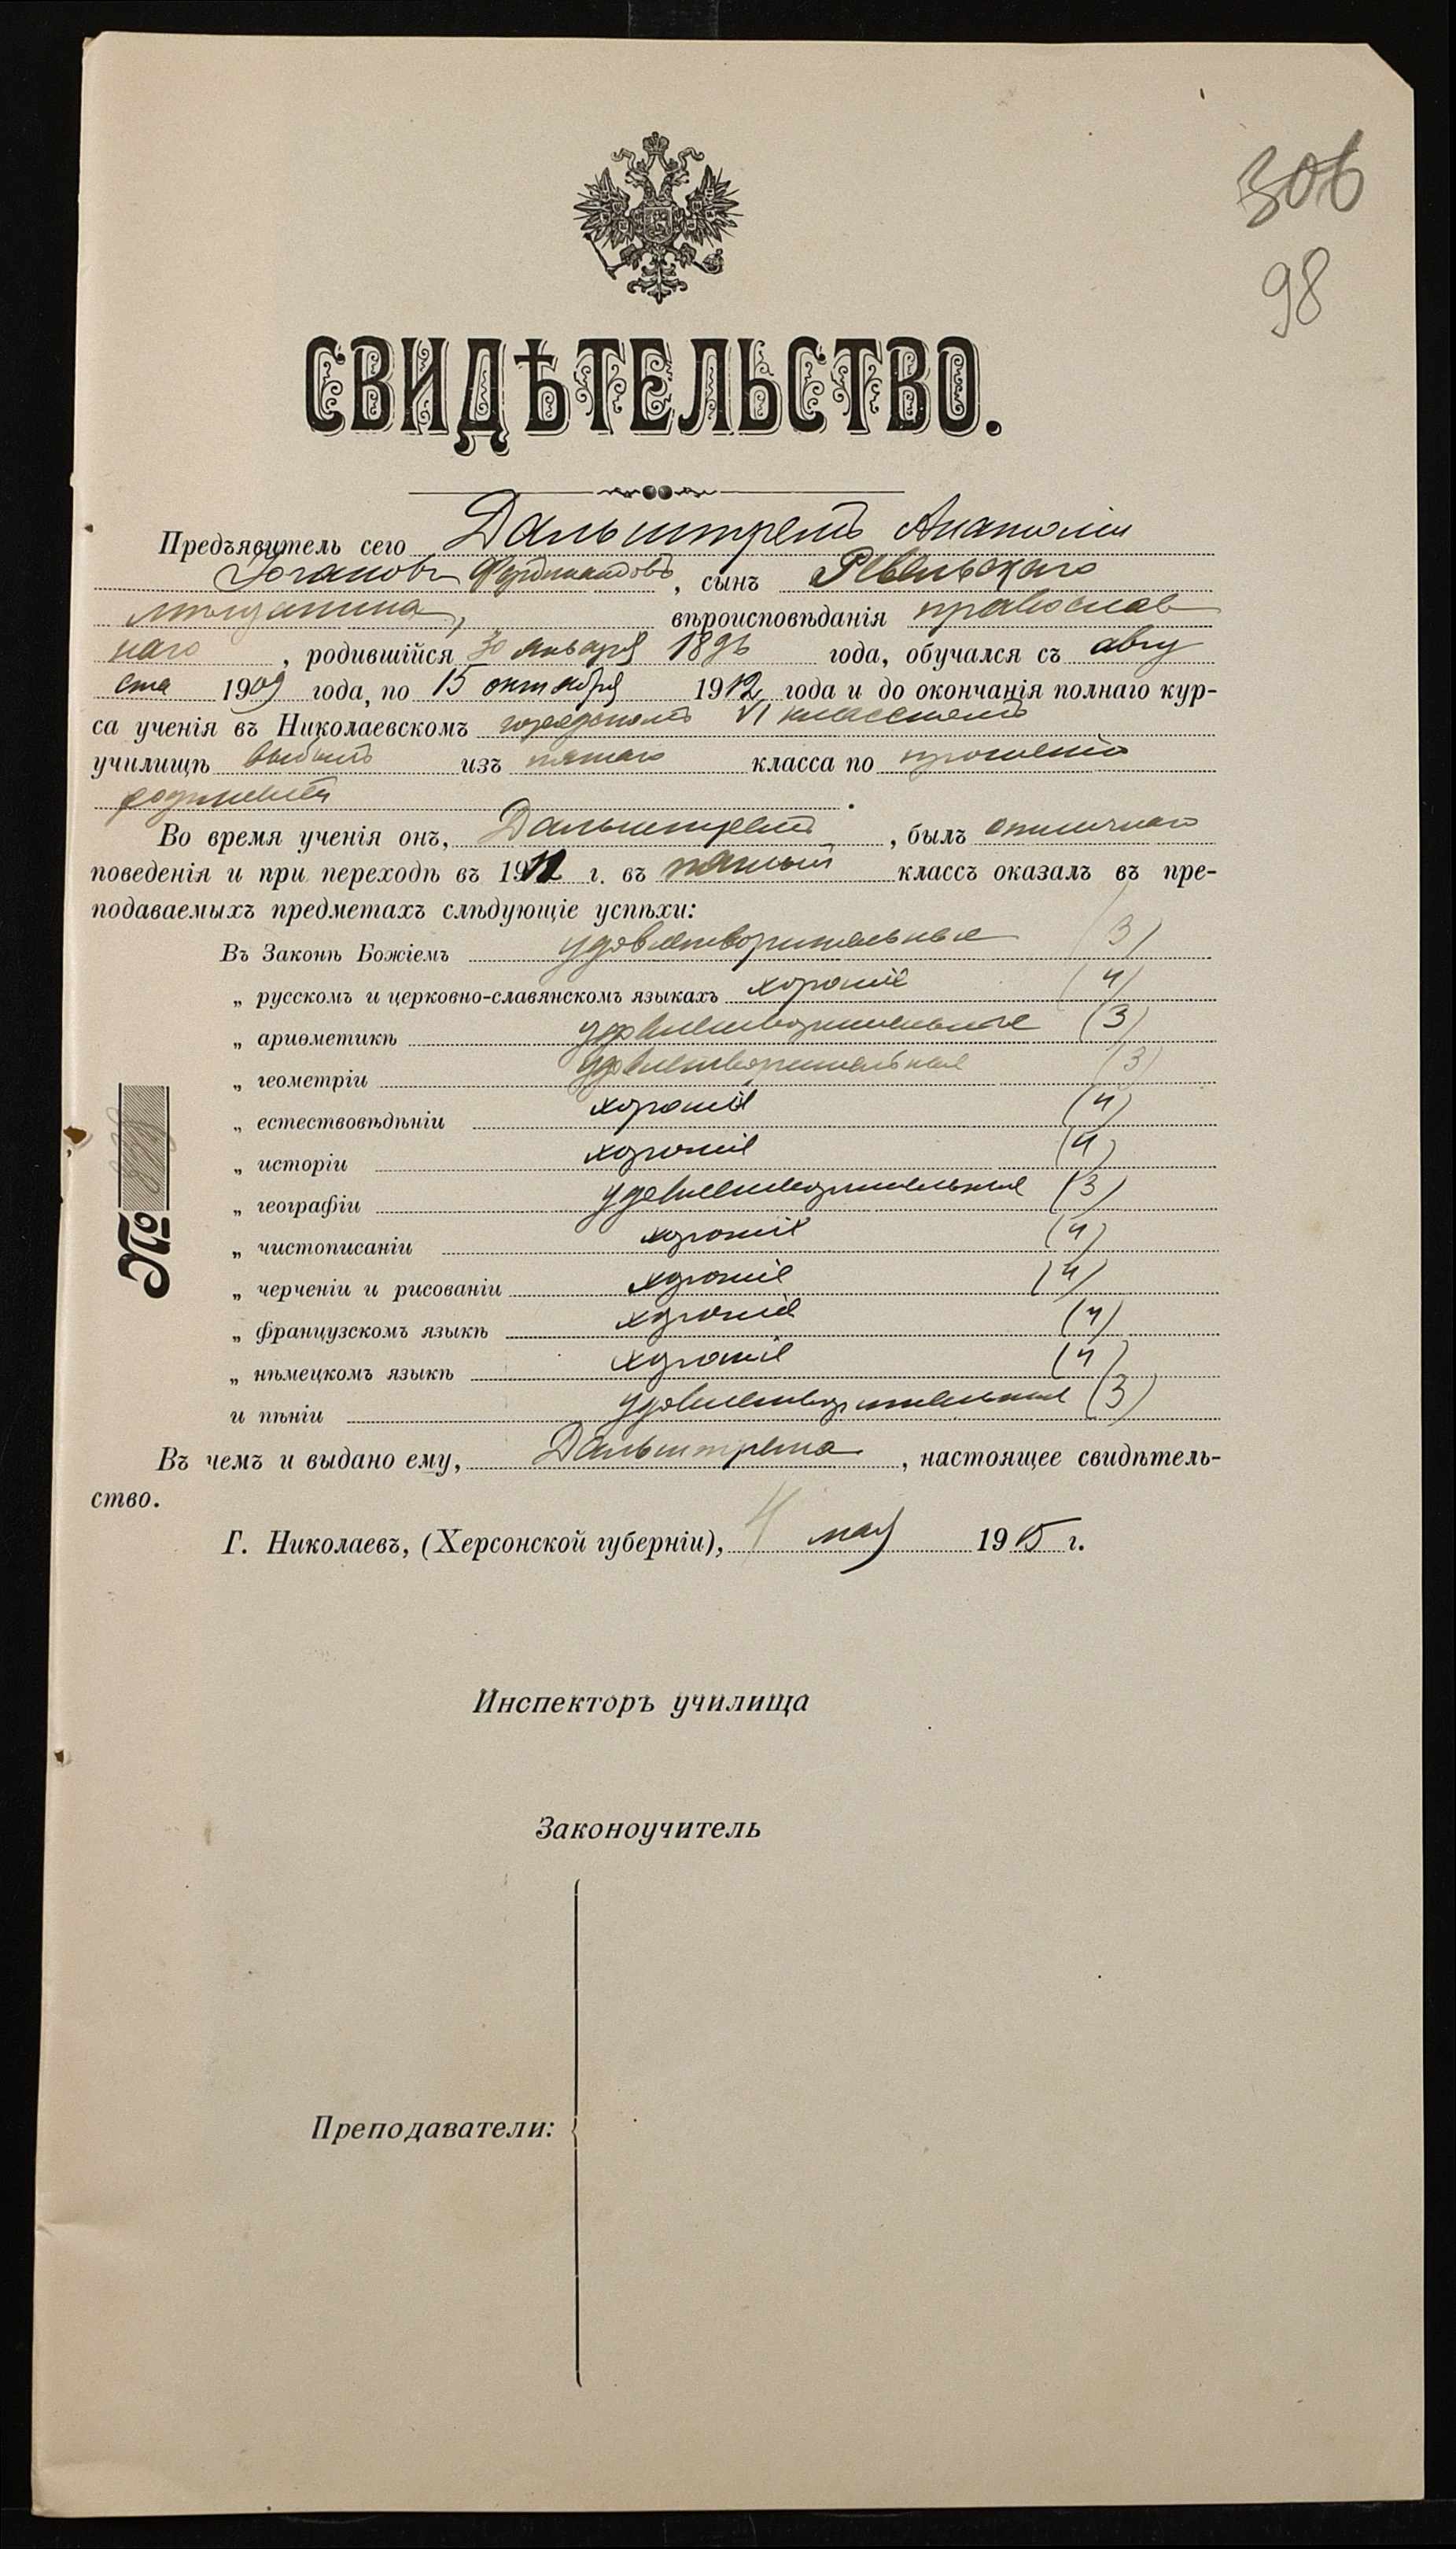 306
98
СВИДѢТЕЛЬСТВО.
Предъявитель сего Дальштремъ Анатолій
Югановъ Фердинандовъ, сынъ Ревельскаго
мѣщанина, вѣроисповѣданія православ
наго, родившійся 30 января 1896 года, обучался съ авгу
ста 1909 года, по 15 октября 1912 года и до окончанія полнаго кур-
са ученія въ Николаевскомъ городскомъ VI классномъ
училищѣ выбылъ изъ пятаго класса по прошенію
родителей.
Во время ученія онъ, Дальштремъ, былъ отличнаго
поведенія и при переходѣ въ 1912 г. въ пятый классъ оказалъ въ пре-
подаваемыхъ предметахъ слѣдующіе успѣхи:
Въ Законѣ Божіемъ удовлетворительные (3)
„ русскомъ и церковно-славянскомъ языкахъ хорошіе (4)
„ ариѳметикѣ удовлетворительные (3)
„ геометріи удовлетворительные (3)
„ естествовѣдѣніи хорошіе (4)
„ исторіи хорошіе (4)
„ географіи удовлетворительные (3)
„ чистописаніи хорошіе (4)
„ черченіи и рисованіи хорошіе (4)
„ французскомъ языкѣ хорошіе (4)
„ нѣмецкомъ языкѣ хорошіе (4)
и пѣніи удовлетворительные (3)
Въ чемъ и выдано ему, Дальштрему, настоящее свидѣтель-
ство.
Г. Николаевъ, (Херсонской губерніи), 4 мая 1915 г.
№
Инспекторъ училища
Законоучитель
Преподаватели: